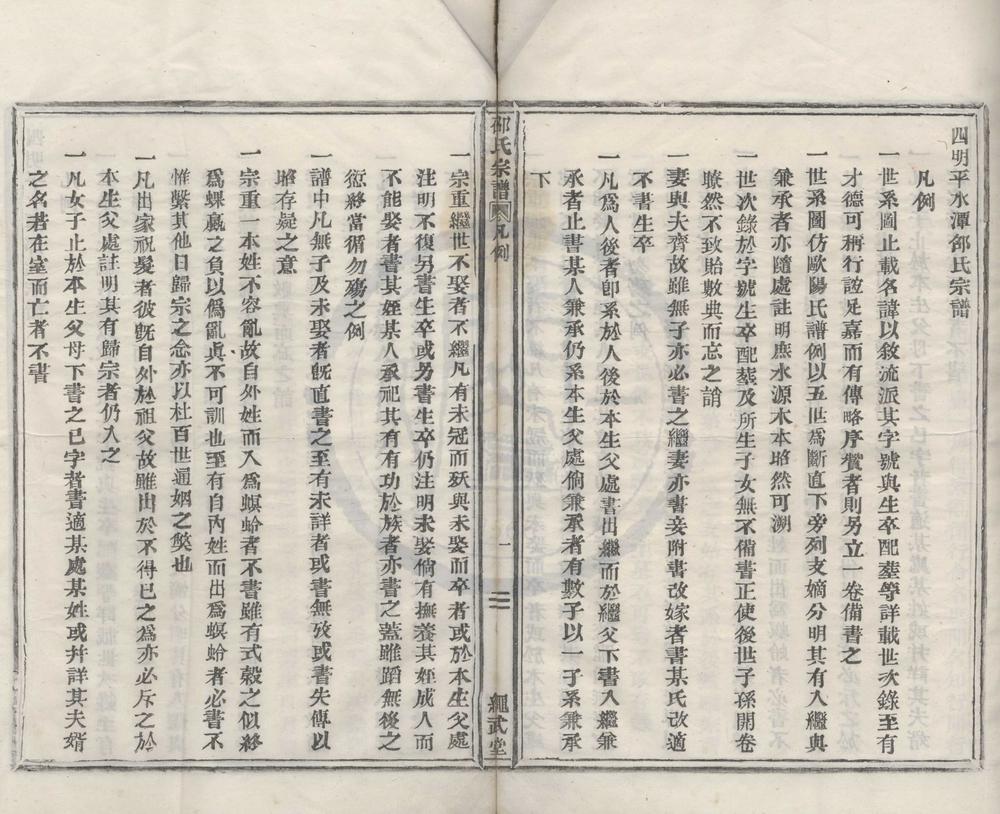 四明平水潭邵氏宗譜
凡例
一世系圖止載名諱以敘流派其字號與生卒配塟等詳載世次錄至有
才德可稱行誼足嘉而有傳略序贊者則另立一卷備書之
一世系圖仿歐陽氏譜例以五世爲斷直下旁列支嫡分明其有入繼與
兼承者亦隨處註明庶水源木本昭然可溯
一世次錄於字號生卒配塟及所生子女無不備書正使後世子孫開卷
瞭然不致貽數典而忘之誚
一妻與夫齊故雖無子亦必書之繼妻亦書妾附書改嫁者書某氏改適
不書生卒
一凡爲人後者卽系於人後於本生父處書出繼而於繼父下書入繼兼
承者止書某人兼承仍系本生父處倘兼承者有數子以一子系兼承
下
邵氏宗譜
凡例
一
繩武堂
一宗重繼世不娶者不繼凡有未冠而殀與未娶而卒者或於本生父處
注明不復另書生卒或另書生卒仍注明未娶倘有撫養其姪成人而
不能娶者書某姪某人承祀其有有功於族者亦書之蓋雖蹈無後之
愆終當循勿殤之例
一譜中凡無子及未娶者旣直書之至有未詳者或書無攷或書失傳以
昭存疑之意
一宗重一本姓不容亂故自外姓而入爲螟蛉者不書雖有式穀之似終
爲蜾蠃之負以僞亂眞不可訓也至有自內姓而出爲螟蛉者必書不
惟繫其他日歸宗之念亦以杜百世通姻之獘也
一凡出家祝髮者彼旣自外於祖父故雖出於不得已之爲亦必斥之於
本生父處註明其有歸宗者仍入之
一凡女子止於本生父母下書之已字者書適某處某姓或幷詳其夫婿
之名若在室而亡者不書